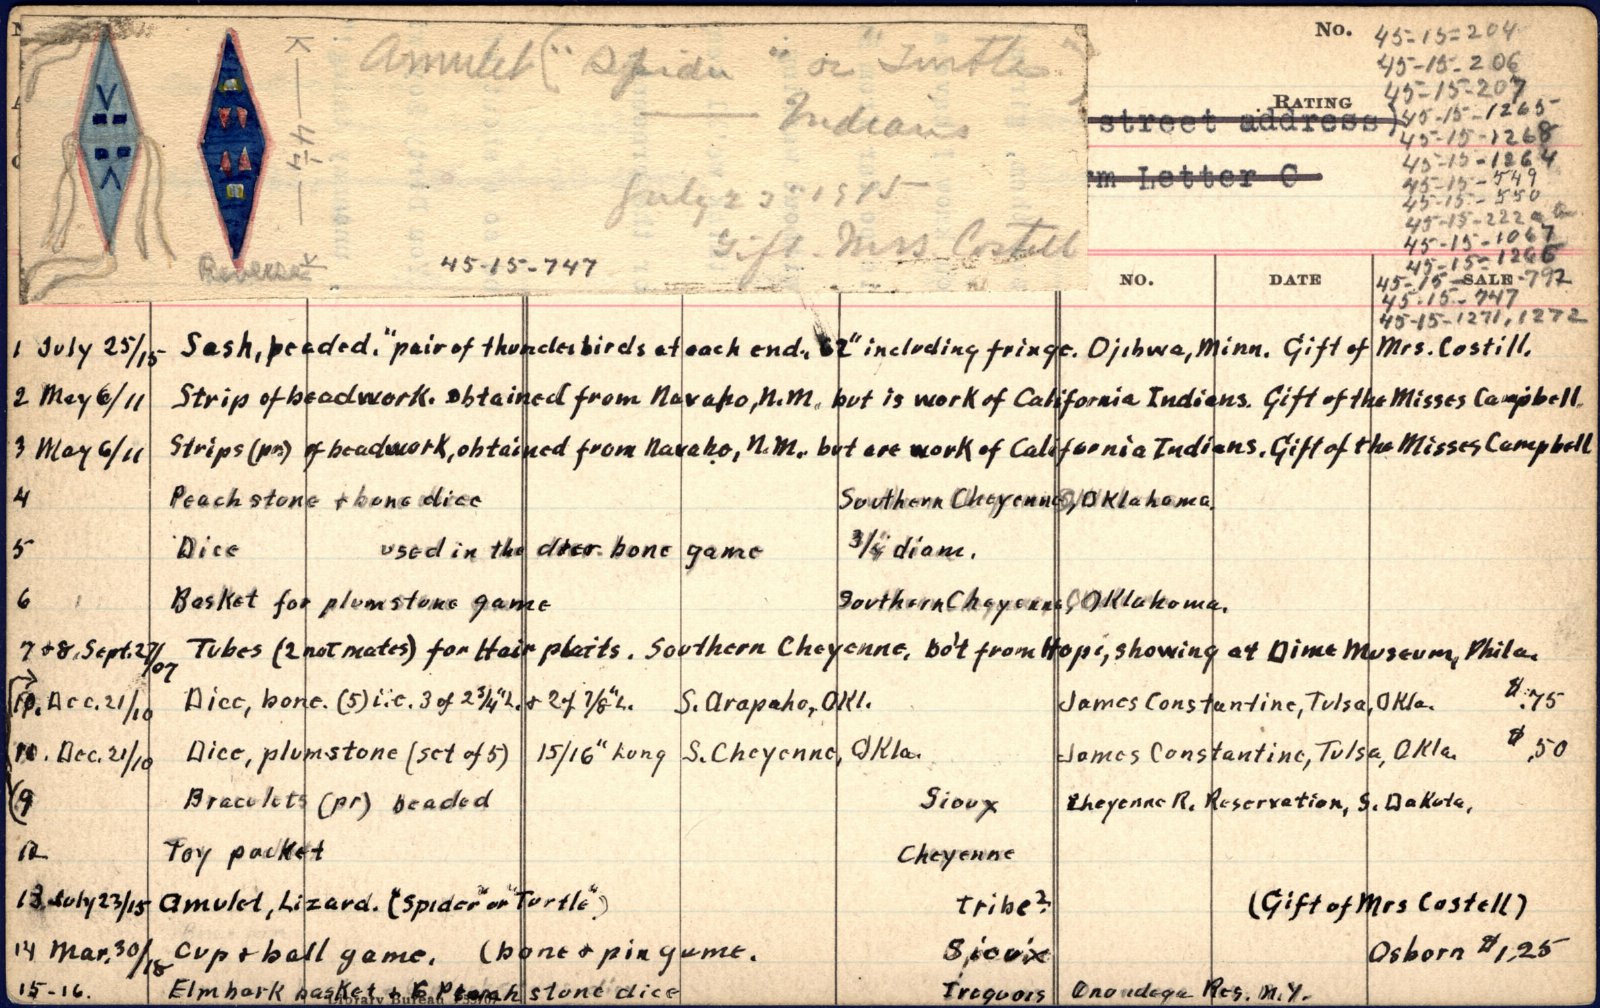 Amulet ("Spider" or "Turtle"
Indians
July 23 1915
Gift. Mrs Costell
45-15-747
Reverse
K — 4 1/4 — K
No.
45-15-204
45-15-206
45-15-207
RATING
street address)
45-15-1265
45-15-1268
45-15-1264
rm Letter C
45-15-549
45-15-550
45-15-222
45-15-1067
45-15-1266
NO. DATE SALE
45-15-792
45-15-747
45-15-1271, 1272
1 July 25/15 Sash, beaded. "pair of thunderbirds at each end. 62" including fringe. Ojibwa, Minn. Gift of Mrs. Costill.
2 May 6/11 Strip of beadwork. obtained from Navaho, N.M. but is work of California Indians. Gift of the Misses Campbell.
3 May 6/11 Strips (pr) of beadwork, obtained from Navaho, N.M. but are work of California Indians. Gift of the Misses Campbell
4 Peach stone + bone dice Southern Cheyenne, Oklahoma.
5 Dice used in the deer bone game 3/8" diam.
6 Basket for plumstone game Southern Cheyenne, Oklahoma.
7 + 8. Sept. 27/07 Tubes (2 not mates) for Hair plaits. Southern Cheyenne. bo't from Hopi, showing at Dime Museum, Phila.
10. Dec. 21/10 Dice, bone. (5) i.e. 3 of 2 3/4" L. + 2 of 7/8" L. S. Arapaho, Okl. James Constantine, Tulsa, Okla. $.75
11. Dec. 21/10 Dice, plumstone (set of 5) 15/16" Long S. Cheyenne, Okla. James Constantine, Tulsa, Okla. $.50
9 Bracelets (pr) beaded Sioux Cheyenne R. Reservation, S. Dakota.
12 Toy packet Cheyenne
13. July 23/15 Amulet, Lizard. ("Spider" or "Turtle") Tribe? (Gift of Mrs Costell)
14 Mar. 30/18 Cup + ball game. (bone + pin game. Sioux Osborn $1.25
15-16. Elm bark basket + 6 Peach stone dice Iroquois Onondaga Res. N.Y.
Library Bureau